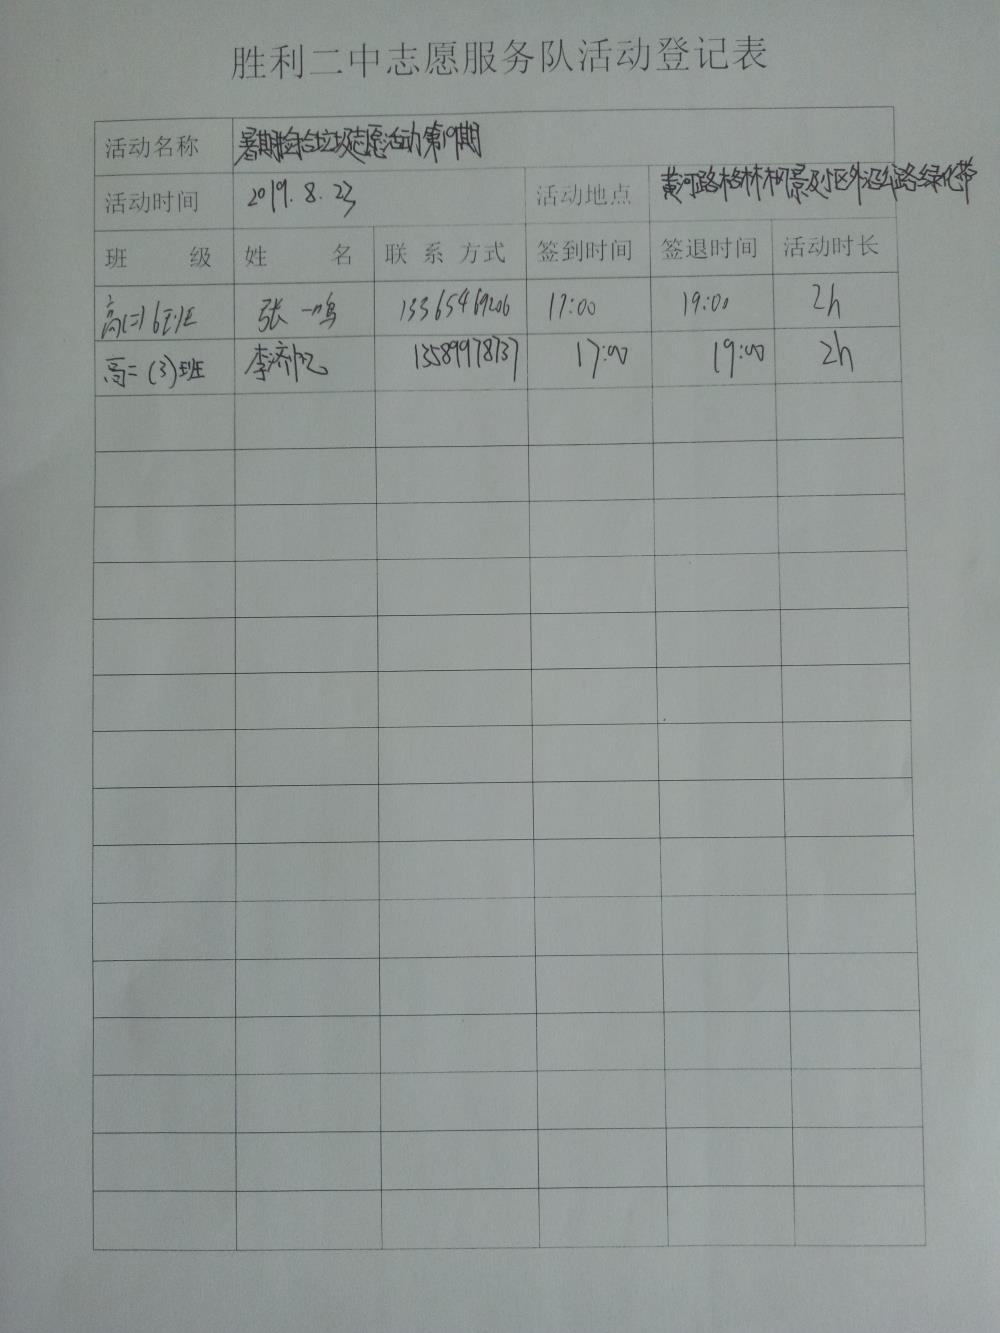 胜利二中志愿服务队活动登记表
活动名称 暑期捡拾垃圾志愿活动第19期
活动时间 2019.8.23 活动地点 黄河路格林枫景及小区外沿公路绿化带
班 级 姓 名 联 系 方式 签到时间 签退时间 活动时长
高(二)6班 张一鸣 13365469206 17:00 19:00 2h
高二(3)班 李济 13589978737 17:00 19:00 2h